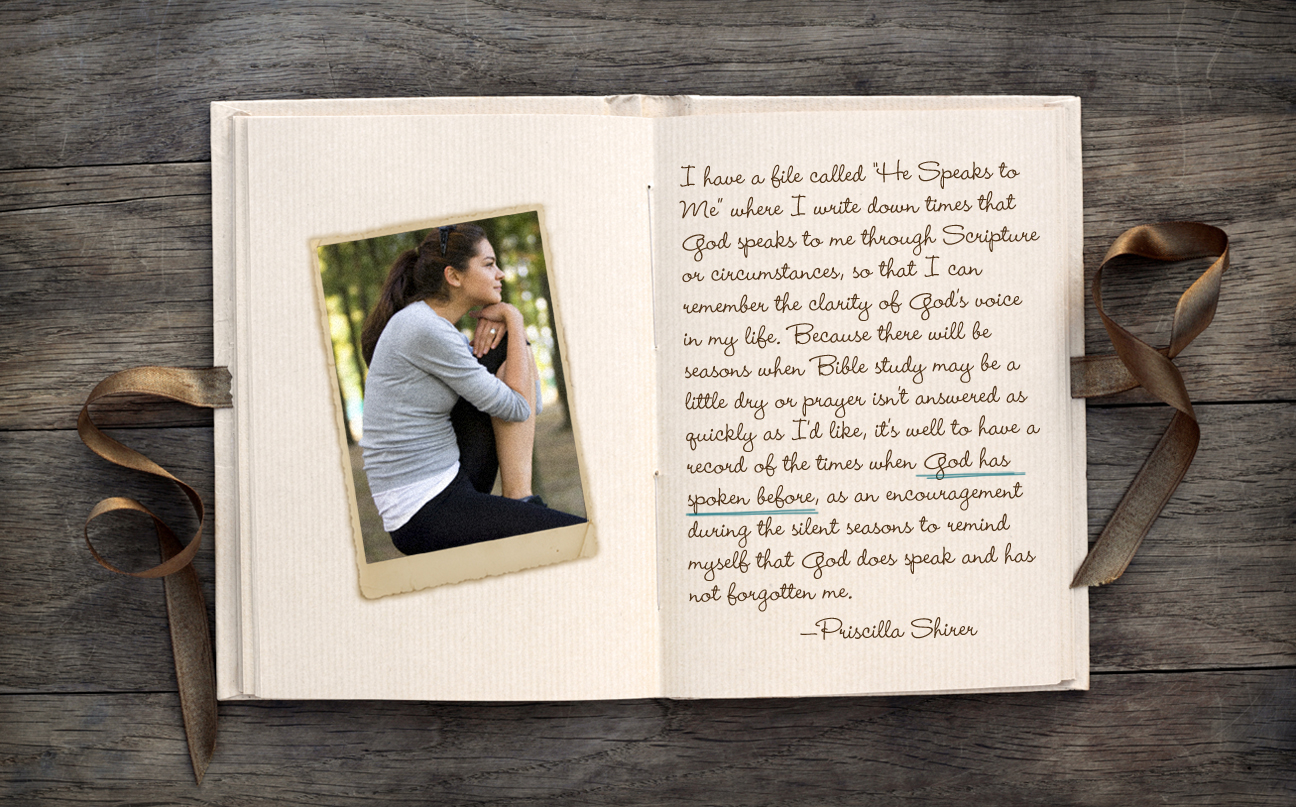 I have a file called "He Speaks to
Me" where I write down times that
God speaks to me through Scripture
or circumstances, so that I can
remember the clarity of God's voice
in my life. Because there will be
seasons when Bible study may be a
little dry or prayer isn't answered as
quickly as I'd like, it's well to have a
record of the times when God has
spoken before, as an encouragement
during the silent seasons to remind
myself that God does speak and has
not forgotten me.
—Priscilla Shirer